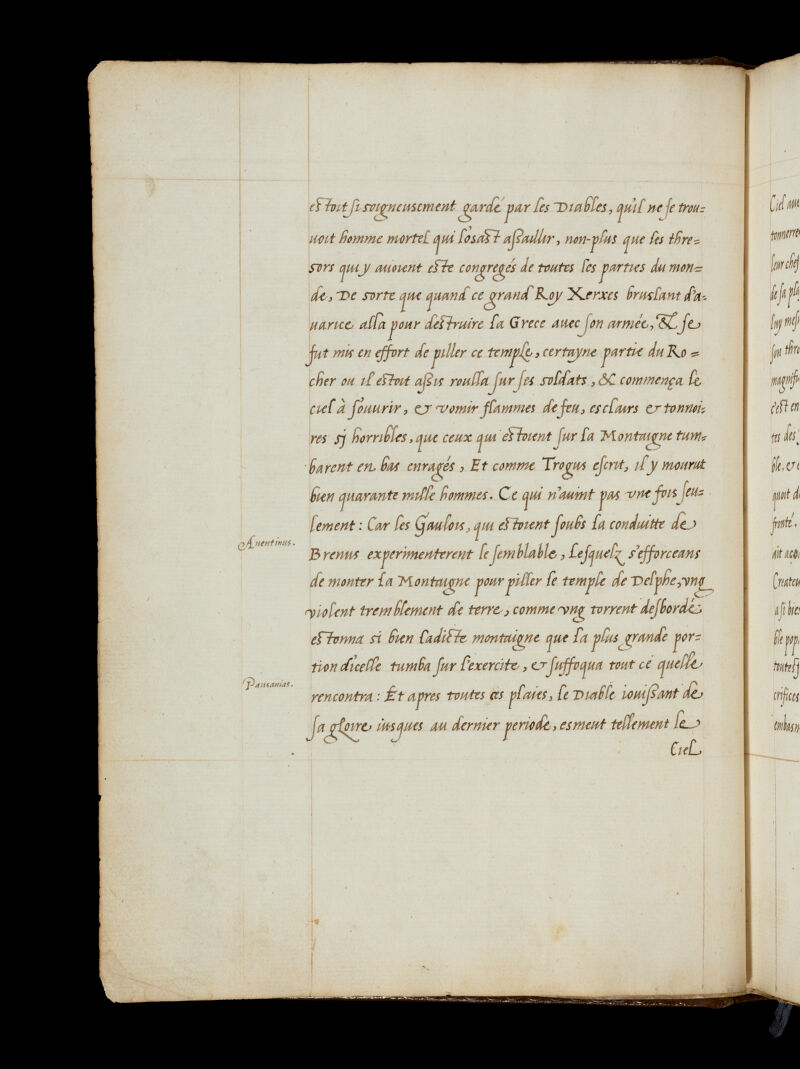 estoit si soigneusement gardé par les Diables, qu'il ne se trou=
uoit homme mortel qui l'osast assaillir, non-plus que les thre=
sors qui y auoient este congregés de toutes les parties du mon=
de, De sorte que quand ce grand Roy Xerxes bruslant d'a=
uarice alla pour destruire la Grece auec son armée, & se
fut mis en effort de piller ce temple, certayne partie du Ro=
cher ou il estoit assis roulla sur ses soldats, & commença le
ciel à s'ouurir, & vomir flammes de feu, esclairs & tonnoi=
res sj horribles, que ceux qui estoient sur la Montaigne tum=
barent en bas enragés, Et comme Trogus escrit, il y mourut
bien quarante mille hommes. Ce qui n'auint pas vne fois seu=
lement: Car les Gaulois, qui estoient soubs la conduitte de
Auentinus.
Brenus experimenterent le semblable, Lesquelz s'efforceans
de monter la Montaigne pour piller le temple de Delphe, vng
violent tremblement de terre, comme vng torrent desbordé
estonna si bien ladicte montaigne que la plus grande por=
tion d'icelle tumba sur l'exercite, & suffoqua tout ce quelle
Pausanias.
rencontra: Et apres toutes ces plaies, le Diable iouissant de
sa gloire iusques au dernier periode, esmeut tellement le
Ciel
Ciel aue
tonnerre
leur chef
de sa pla
luy mes
son thr
magnifi
c'est en
tes des
ble, &
quoit d
fronté,
Createu
a si bie
ble pop
crifices